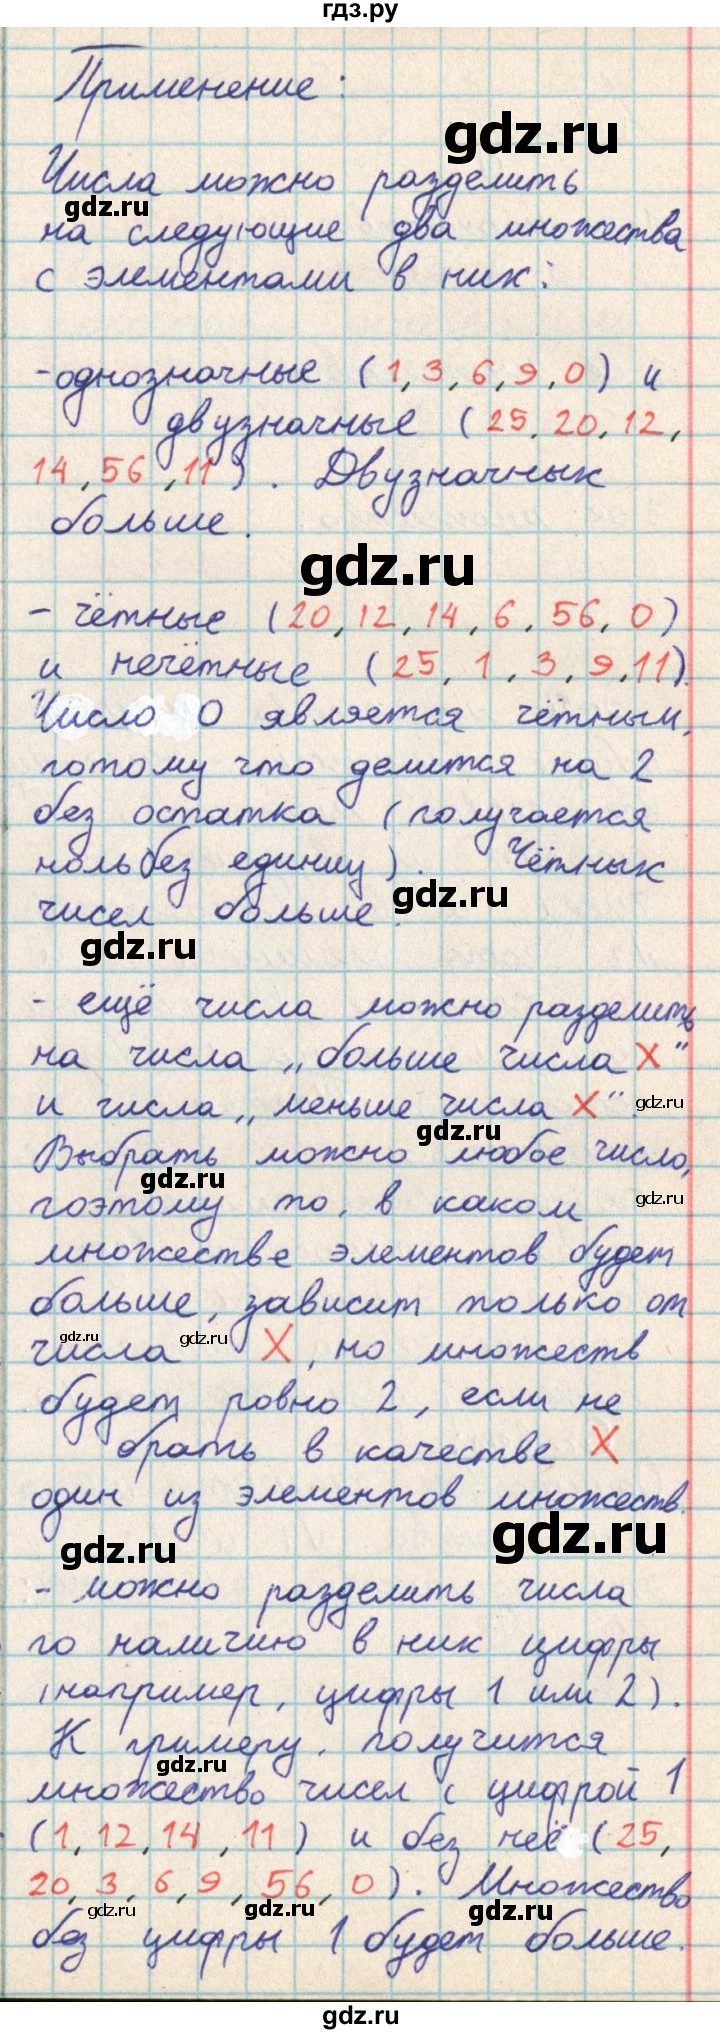 гдз.ру
Применение:
gdz.ru
Числа можно разделить
gdz.ru
на следующие два множества
с элементами в них:
- однозначные (1,3,6,9,0) и
двузначные (25,20,12,
14,56,11). Двузначных
больше.
gdz.ru
- чётные (20,12,14,6,56,0)
и нечётные (25,1,3,9,11).
Число 0 является чётным,
потому что делится на 2
без остатка (получается
ноль без единиц). Чётных
gdz.ru
чисел больше.
gdz.ru
- ещё числа можно разделить
на числа „больше числа X"
и числа „меньше числа X". gdz.ru
gdz.ru
Выбрать можно любое число,
gdz.ru
поэтому то, в каком gdz.ru
множестве элементов будет
больше, зависит только от
gdz.ru gdz.ru
числа X, но множеств
будет ровно 2, если не
брать в качестве X
один из элементов множеств.
gdz.ru
gdz.ru
- можно разделить числа
по наличию в них цифры
(например, цифры 1 или 2).
К примеру, получится
gdz.ru
множество чисел с цифрой 1
(1,12,14,11) и без неё (25,
20,3,6,9,56,0). Множество
gdz.ru gdz.ru
без цифры 1 будет больше.
gdz.ru